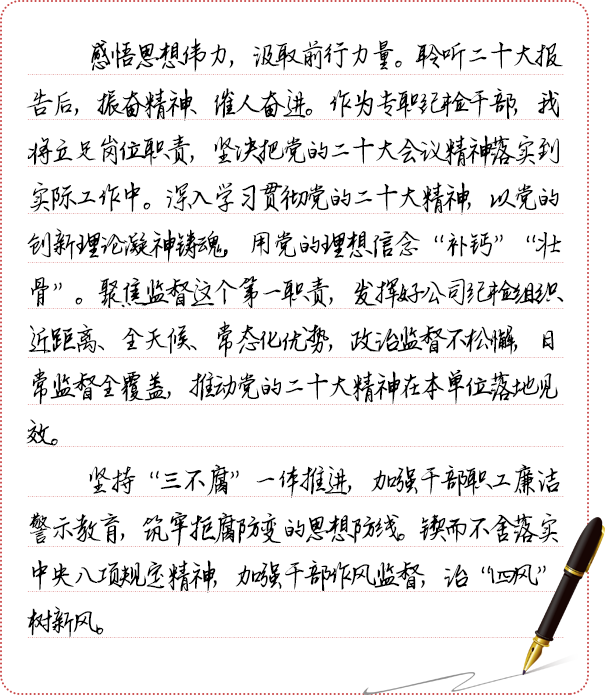 感悟思想伟力，汲取前行力量。聆听二十大报
告后，振奋精神、催人奋进。作为专职纪检干部，我
将立足岗位职责，坚决把党的二十大会议精神落实到
实际工作中。深入学习贯彻党的二十大精神，以党的
创新理论凝神铸魂，用党的理想信念“补钙”“壮
骨”。聚焦监督这个第一职责，发挥好公司纪检组织
近距离、全天候、常态化优势，政治监督不松懈，日
常监督全覆盖，推动党的二十大精神在本单位落地见
效。
坚持“三不腐”一体推进，加强干部职工廉洁
警示教育，筑牢拒腐防变的思想防线。锲而不舍落实
中央八项规定精神，加强干部作风监督，治“四风”
树新风。